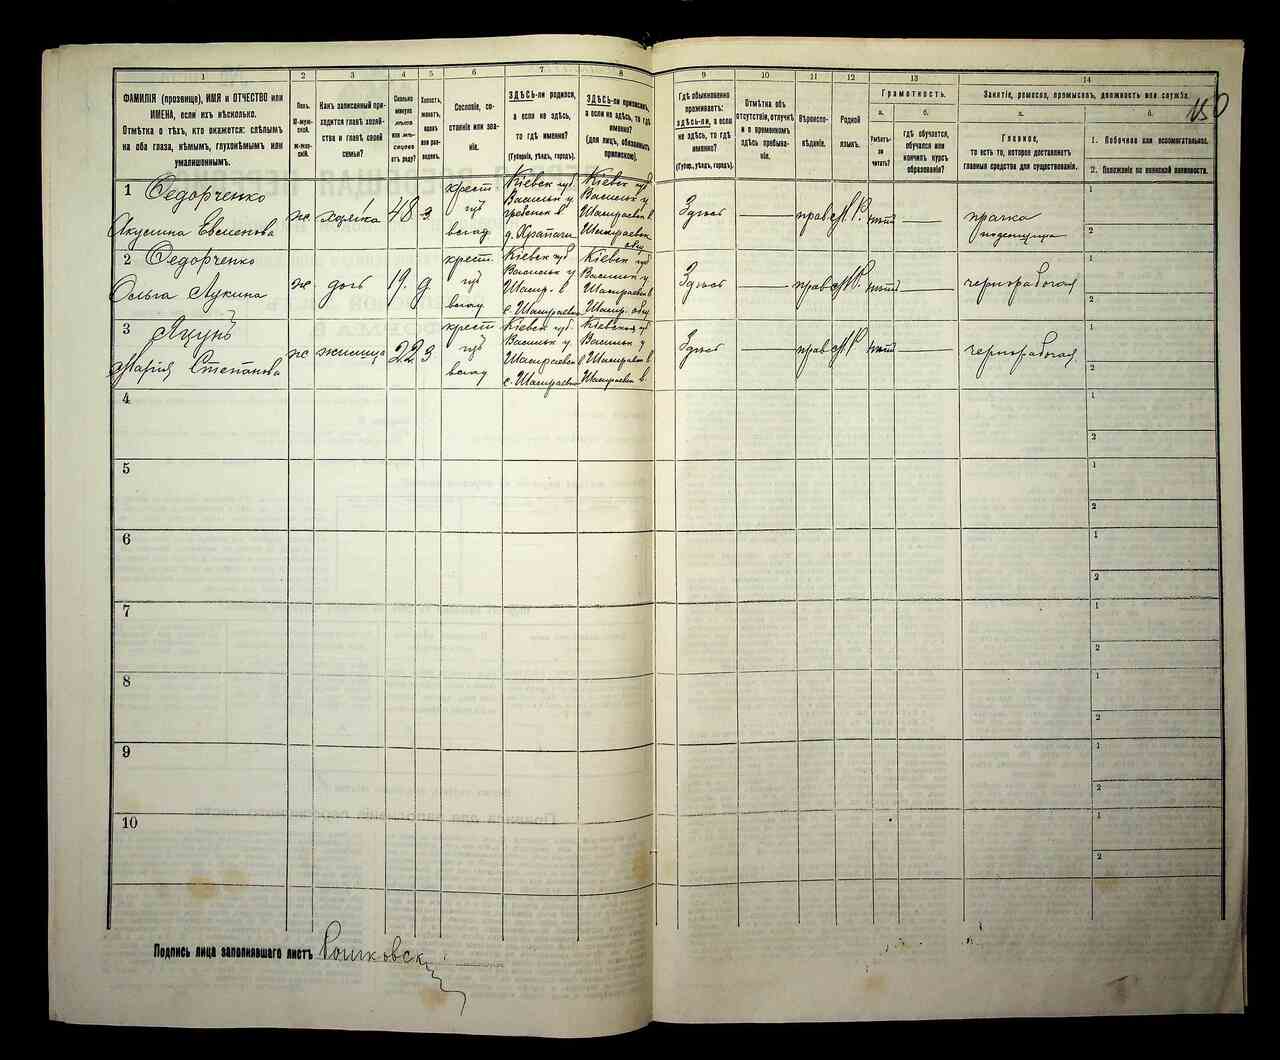 1
2
3
4
5
6
7
8
9
10
11
12
13
14
150
ФАМИЛІЯ (прозвище), ИМЯ и ОТЧЕСТВО или
ИМЕНА, если ихъ нѣсколько.
Отмѣтка о тѣхъ, кто окажется: слѣпымъ
на оба глаза, нѣмымъ, глухонѣмымъ или
умалишоннымъ.
Полъ.
М-муж-
ской.
Ж-жен-
скій.
Какъ записанный при-
ходится главѣ хозяй-
ства и главѣ своей
семьи?
Сколько
минуло
лѣтъ
или мѣ-
сяцевъ
отъ роду?
Холостъ,
женатъ,
вдовъ
или раз-
веденъ.
Сословіе, со-
стояніе или зва-
ніе.
ЗДѢСЬ-ли родился,
а если не здѣсь,
то гдѣ именно?
(Губернія, уѣздъ, городъ).
ЗДѢСЬ-ли приписанъ,
а если не здѣсь, то гдѣ
именно?
(для лицъ, обязанныхъ
припискою).
Гдѣ обыкновенно
проживаетъ:
здѣсь-ли, а если
не здѣсь, то гдѣ
именно?
(Губер., уѣздъ, городъ).
Отмѣтка объ
отсутствіи, отлучкѣ
и о временномъ
здѣсь пребыва-
ніи.
Вѣроиспо-
вѣданіе.
Родной
языкъ.
Грамотность.
а.
б.
Умѣетъ-
ли
читать?
Гдѣ обучается,
обучался или
кончилъ курсъ
образованія?
Занятіе, ремесло, промыселъ, должность или служба.
а.
б.
Главное,
то есть то, которое доставляетъ
главныя средства для существованія.
1. Побочное или вспомогательное.
2. Положеніе по воинской повинности.
1 Федорченко
Акулина Евсменова
ж хозяйка 48 з
крест
Кіевск губ.
Васильк у
Кіевск губ
Васильк у
Шамраевск в.
Здѣсь — прав М.Р. нѣтъ —
прачка
поденщица
1
2
2 Федорченко
Ольга Лукина
ж дочь 19. д
крест.
Кіевск губ
Васильк у
Шамр. в
с. Шамраевка
Кіевск губ
Васильк у
Шамраевск в
Шамр. общ
Здѣсь — прав М.Р. нѣтъ —
чернорабочая
1
2
3 Яцунъ
Марія Степанова
ж жилица 22 з
крест
Кіевск губ.
Васильк у
Шамраевск в
с. Шамраевка
Кіевской губ
Васильк у
Шамраевск в.
Шамраевск в.
Здѣсь — прав М.Р. нѣтъ —
чернорабочая
1
2
4
1
2
5
1
2
6
1
2
7
1
2
8
1
2
9
1
2
10
1
2
Подпись лица заполнявшаго листъ